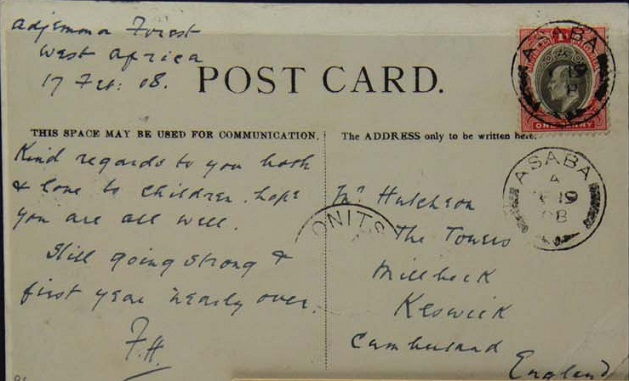 Adjemma Forest
West Africa
17 Feb: 08.
POST CARD.
THIS SPACE MAY BE USED FOR COMMUNICATION.
Kind regards to you both
& love to children. hope
you are all well.
Still going strong &
first year nearly over.
F.H
The ADDRESS only to be written here.
Mr Hutcheon
The Towers
Millbeck
Keswick
Cumberland
England
ONITS
ASABA
19
ONE PENNY
ASABA
A
19
08